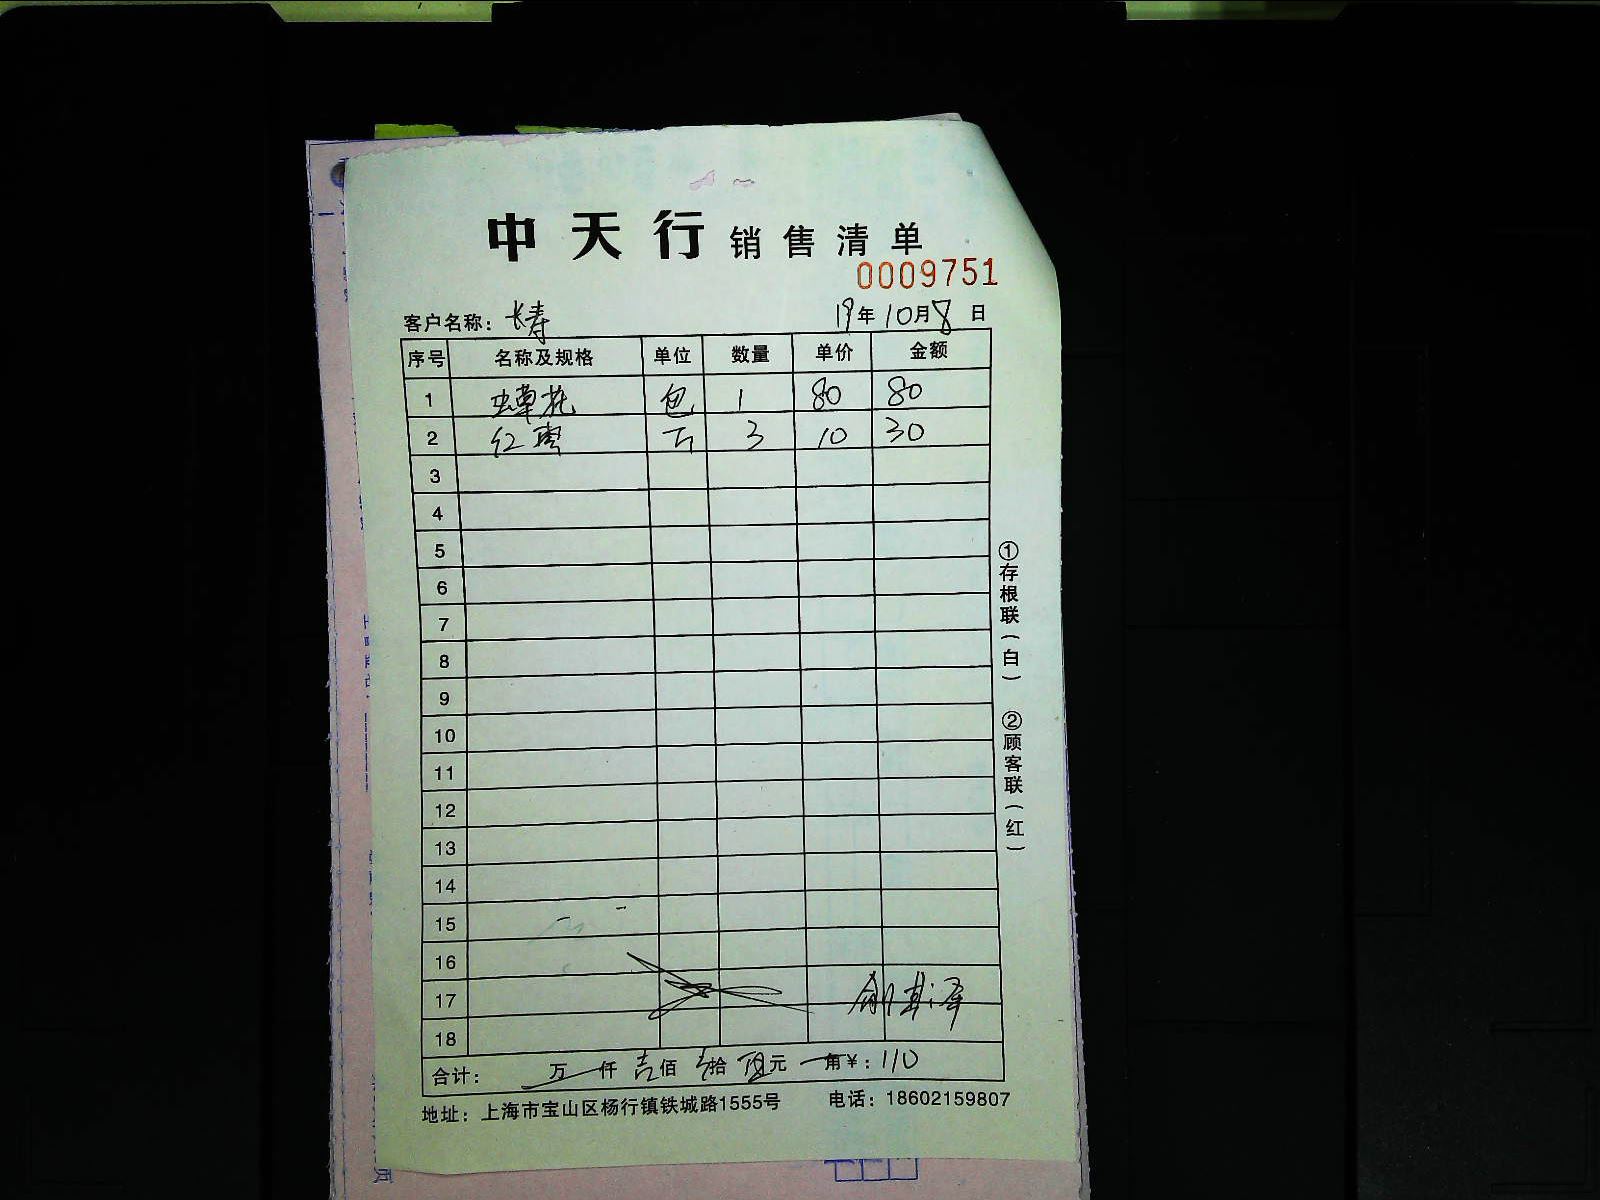 中天行销售清单
0009751
客户名称：长寿 19年10月8日
序号 名称及规格 单位 数量 单价 金额
1 虫草花 包 1 80 80
2 红枣 斤 3 10 30
3
4
5
6
7
8
9
10
11
12
13
14
15
16
17
18
合计： 万 仟 壹佰 壹拾 元 角¥：110
地址：上海市宝山区杨行镇铁城路1555号 电话：18602159807
①存根联（白） ②顾客联（红）